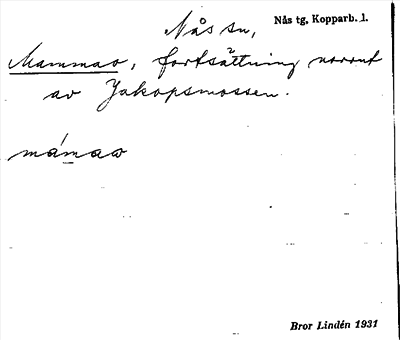 Nås sn, Nås tg, Kopparb. l.
Mammao, fortsättning norrut
av Jakopsmossen.
mámao
Bror Lindén 1931